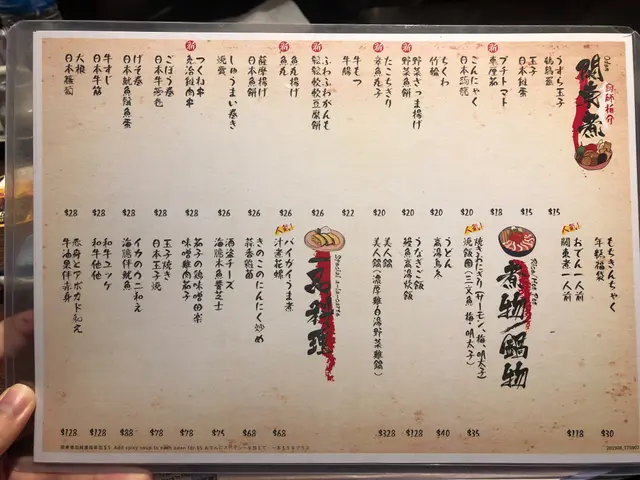 Oden
關東煮
廚師推介
うずら玉子
鵪鶉蛋
$15
玉子
日本雞蛋
$15
プチトマト
車厘茄
$18
こんにゃく
日本蒟蒻
$20
ちくわ
竹輪
$20
野菜さつま揚げ
野菜魚餅
$20
たこちぎり
章魚魚子
$20
牛もつ
牛腸
$22
ふわふわがんも
鬆鬆軟軟豆腐餅
$26
魚鹿揚げ
$26
薩摩揚げ
日本魚餅
$26
しゅうまい巻き
燒賣
$26
つくね串
免治雞肉串
$28
ごぼう巻
日本牛蒡卷
$28
げそ巻
日本魷魚鬚魚蛋
$28
牛すじ
日本牛筋
$28
大根
日本蘿蔔
$28
もちきんちゃく
年糕福袋
$30
おでん一人前
關東煮一人前
$118
煮物/鍋物
焼きおにぎり(サーモン、梅、明太子)
燒飯團(三文魚、梅、明太子)
$35
うどん
高湯烏冬
$40
うなぎご飯
鰻魚高湯炊飯
$128
美人鍋
美人鍋(濃厚雞白湯野菜雞鍋)
$328
一品料理
バイガイうま煮
汁煮花螺
$68
きのこのにんにく炒め
蒜香雜菌
$68
酒盗チーズ
海鹽魚醬芝士
$75
茄子の鶏味噌田楽
味噌雞肉茄子
$78
玉子焼き
日本玉子燒
$78
イカのウニ和え
海膽伴魷魚
$88
和牛ユッケ
和牛他他
$128
赤身とアボカド和え
牛油果伴赤身
$128
Add spicy soup to your oden for $5